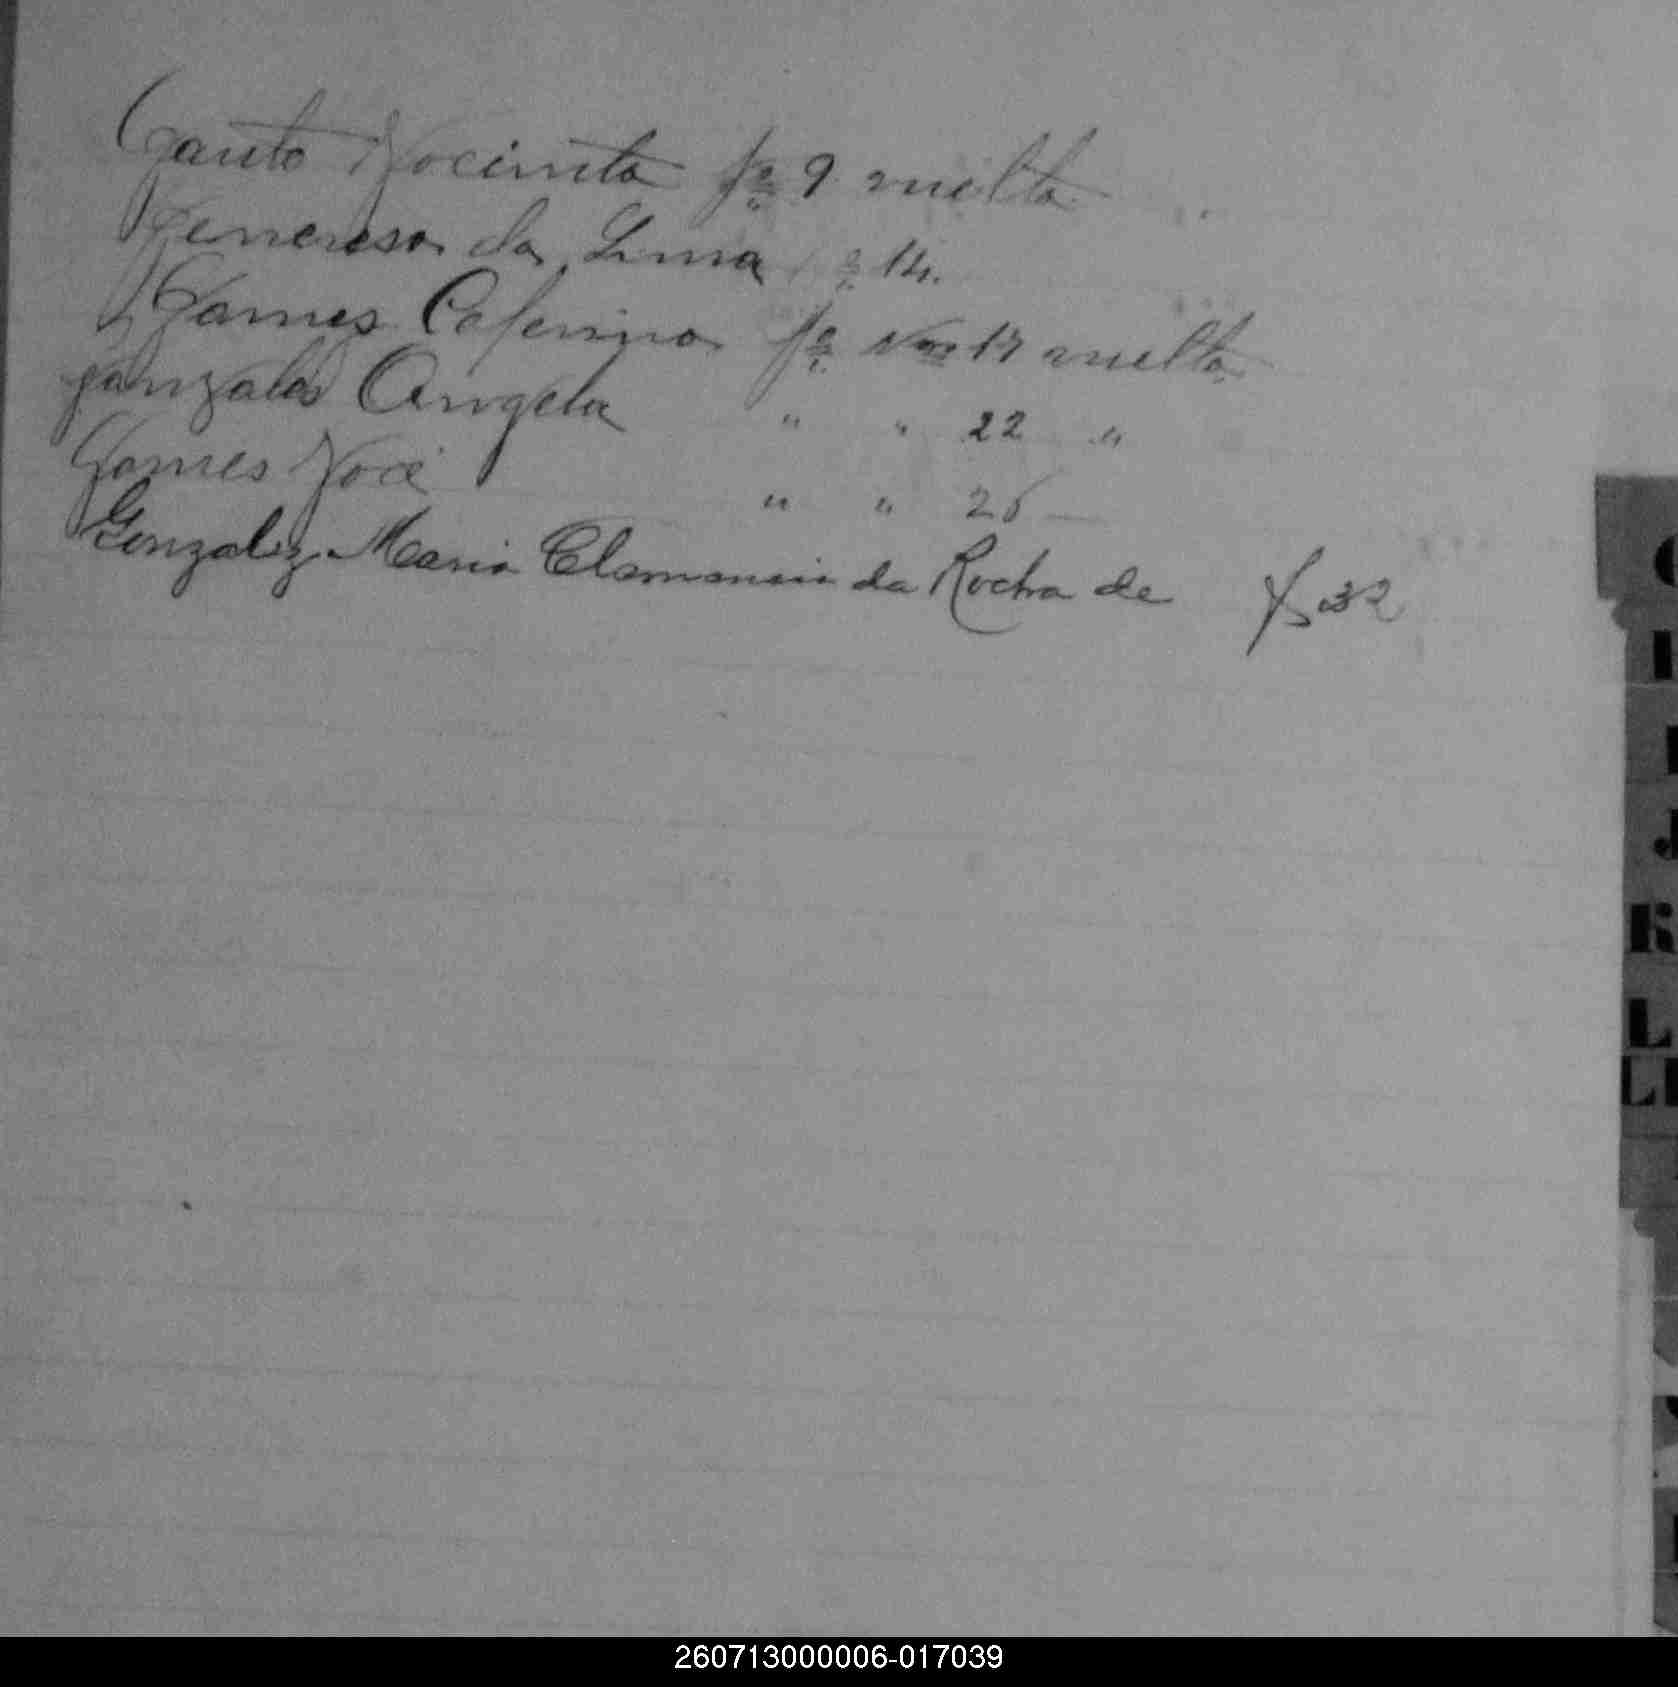 Gauto Jocinta fo 9 vuelta
Generosa da Lima fo 14.
Games Ceferino fo Nro 17 vuelta
Gonzales Angela " " 22 "
Gomes José " " 26
Gonzalez Maria Clemencia da Rocha de fs 32
I
J
K
L
260713000006-017039